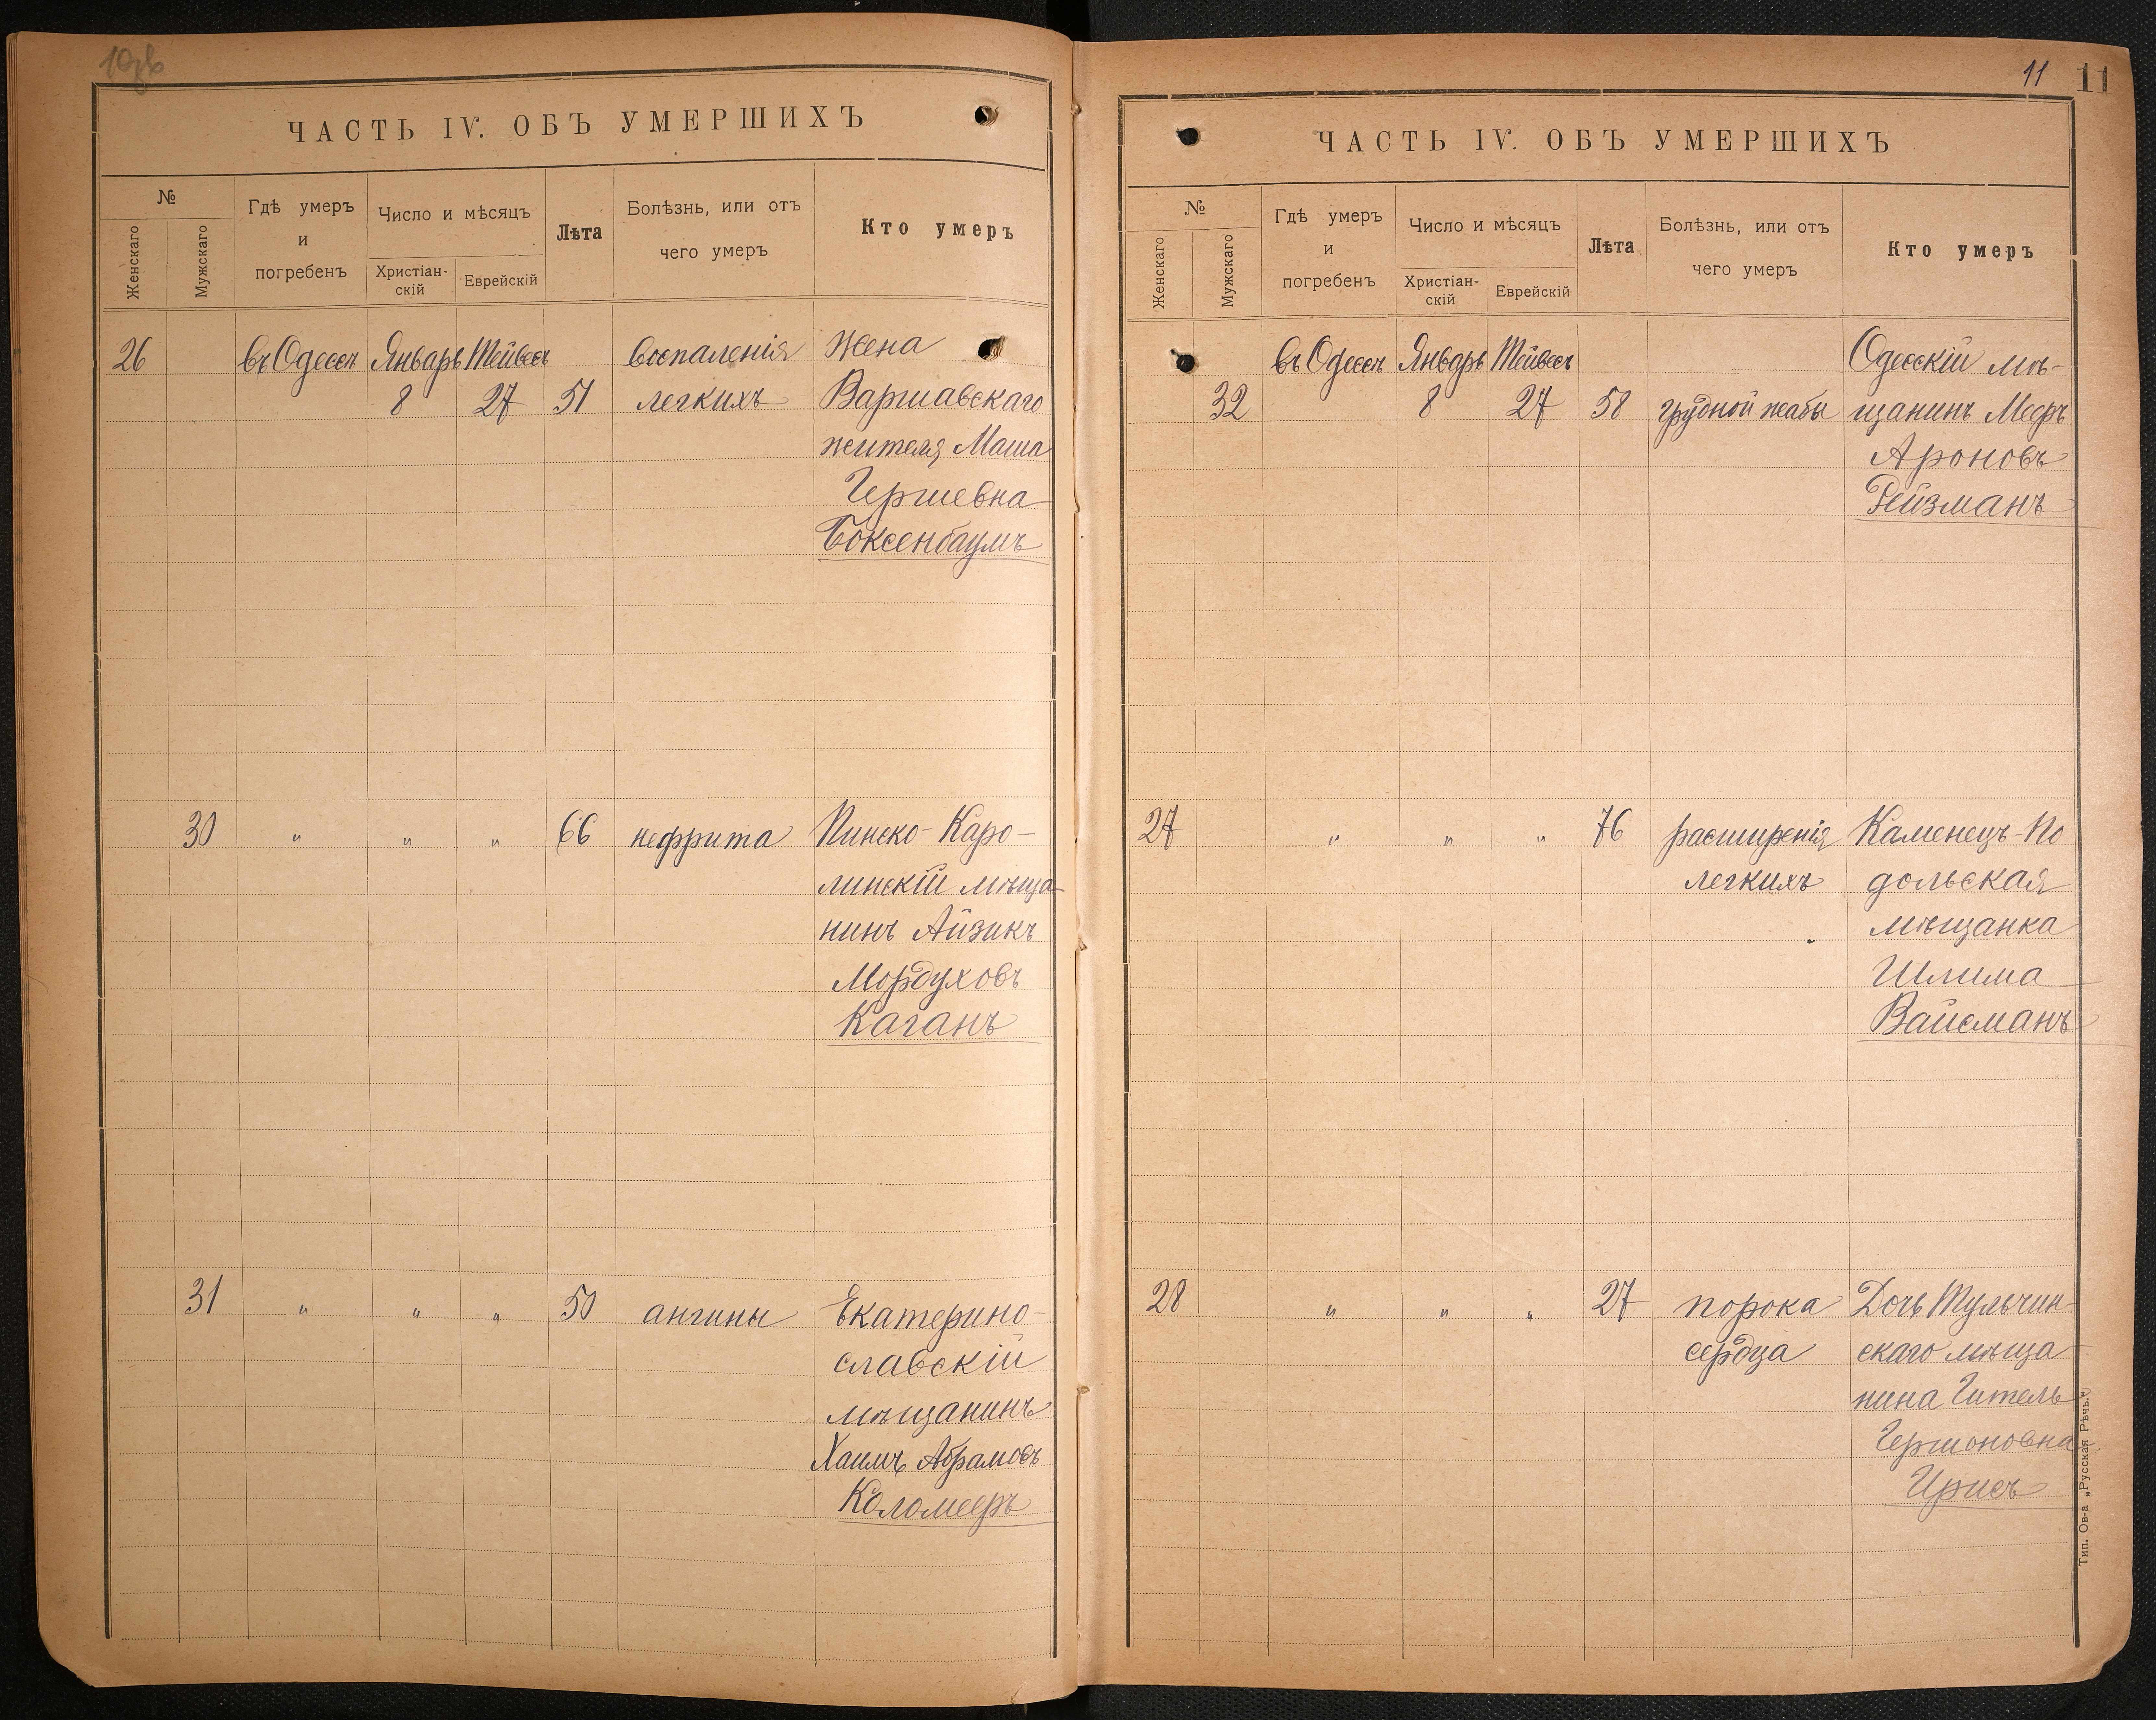 10об
ЧАСТЬ IV. ОБЪ УМЕРШИХЪ
№
Женскаго
Мужскаго
Гдѣ умеръ
и
погребенъ
Число и мѣсяцъ
Христіан-
скій
Еврейскій
Лѣта
Болѣзнь, или отъ
чего умеръ
Кто умеръ
26 въ Одессѣ Январь Тейвесъ воспаленія Жена
8 27 51 легкихъ Варшавскаго
жителя Маша
Гершевна
Боксенбаумъ
30 " " " 66 нефрита Пинско-Каро-
линскій мѣща-
нинъ Айзикъ
Мордуховъ
Каганъ
31 " " " 50 ангины Екатерино-
славскій
мѣщанинъ
Хаимъ Абрамовъ
Коломееръ
11 11
ЧАСТЬ IV. ОБЪ УМЕРШИХЪ
№
Женскаго
Мужскаго
Гдѣ умеръ
и
погребенъ
Число и мѣсяцъ
Христіан-
скій
Еврейскій
Лѣта
Болѣзнь, или отъ
чего умеръ
Кто умеръ
въ Одессѣ Январь Тейвесъ Одесскій мѣ-
32 8 27 58 грудной жабы щанинъ Мееръ
Ароновъ
Рейзманъ
27 " " " 76 расширенія Каменецъ-По
легкихъ дольская
мѣщанка
Шлима
Вайсманъ
28 " " " 27 порока Дочь Тульчин-
сердца скаго мѣща-
нина Гитель
Гершоновна
Ирисъ
Тип. Ов-а „Русская Рѣчь."